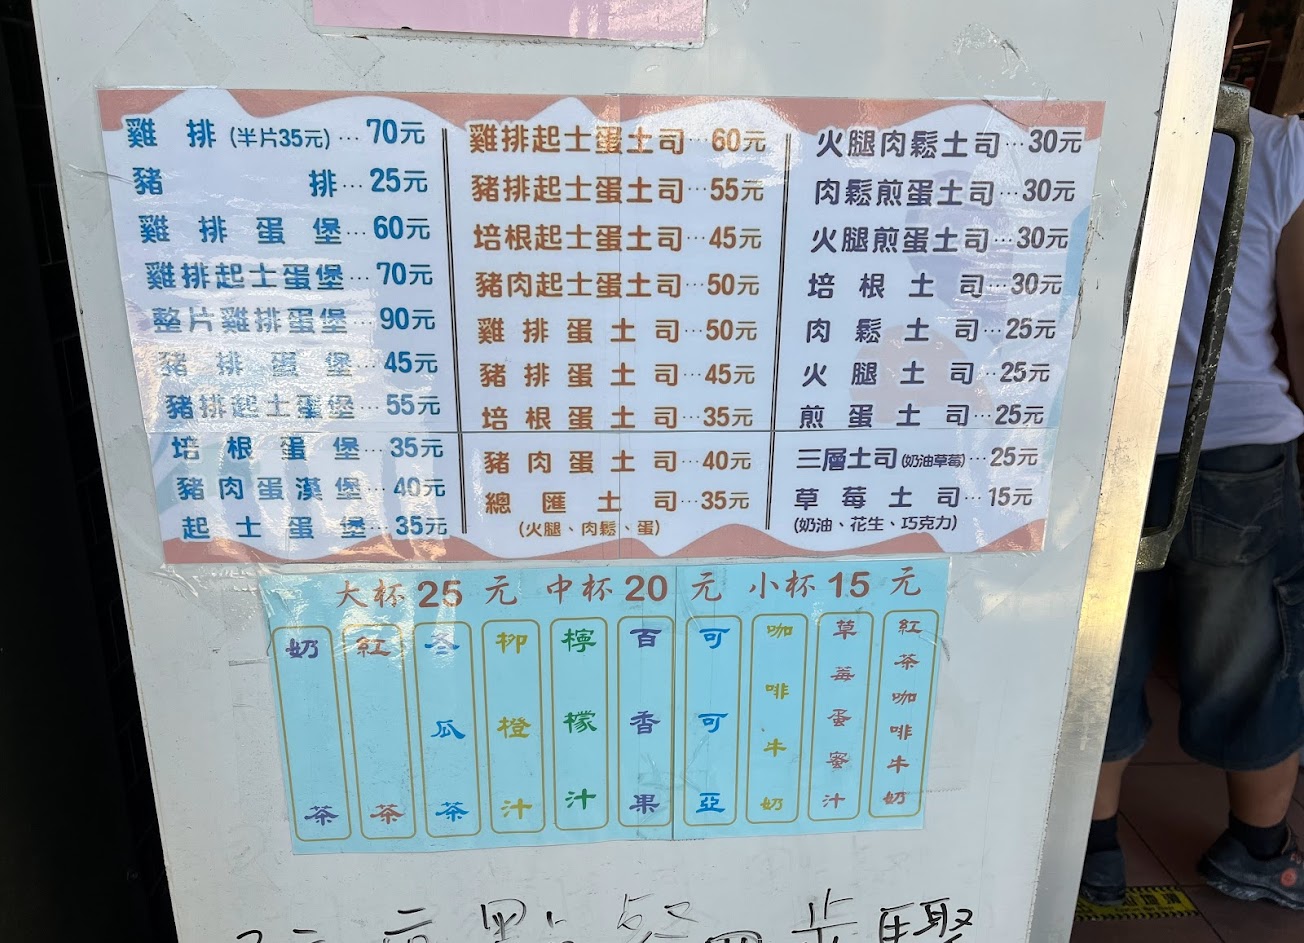 雞排(半片35元)…70元
豬排…25元
雞排蛋堡…60元
雞排起士蛋堡…70元
整片雞排蛋堡…90元
豬排蛋堡…45元
豬排起士蛋堡…55元
培根蛋堡…35元
豬肉蛋漢堡…40元
起士蛋堡…35元
雞排起士蛋土司…60元
豬排起士蛋土司…55元
培根起士蛋土司…45元
豬肉起士蛋土司…50元
雞排蛋土司…50元
豬排蛋土司…45元
培根蛋土司…35元
豬肉蛋土司…40元
總匯土司…35元
(火腿、肉鬆、蛋)
火腿肉鬆土司…30元
肉鬆煎蛋土司…30元
火腿煎蛋土司…30元
培根土司…30元
肉鬆土司…25元
火腿土司…25元
煎蛋土司…25元
三層土司(奶油草莓)…25元
草莓土司…15元
(奶油、花生、巧克力)
大杯25元 中杯20元 小杯15元
奶茶
紅茶
冬瓜茶
柳橙汁
檸檬汁
百香果
可可亞
咖啡牛奶
草莓蛋蜜汁
紅茶咖啡牛奶
點餐四步驟